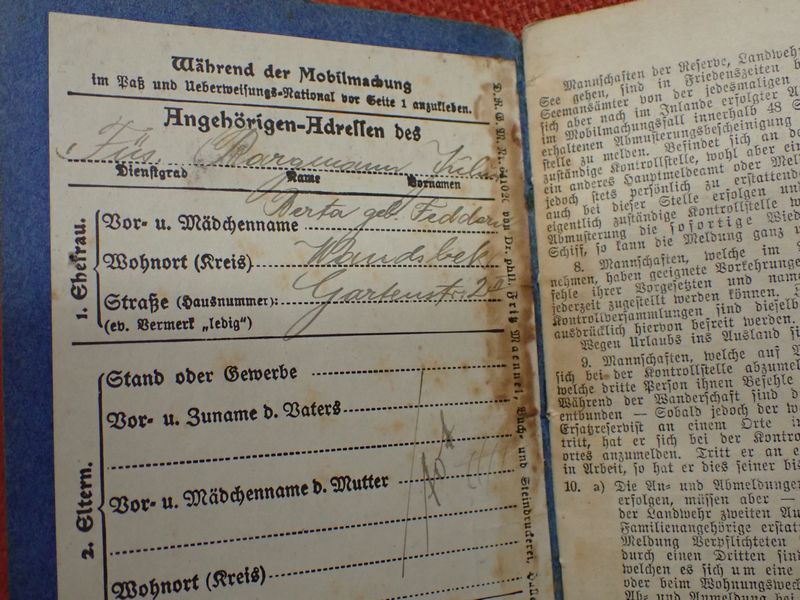 Während der Mobilmachung
im Paß und Ueberweisungs-National vor Seite 1 anzukleben.
Angehörigen-Adressen des
Füs. Bargmann Julius
Dienstgrad Name Vornamen
1. Ehefrau.
Vor- u. Mädchenname Berta geb. Feddern
Wohnort (Kreis) Wandsbek
Straße (Hausnummer): Gartenstr. 2
(ev. Vermerk „ledig")
2. Eltern.
Stand oder Gewerbe
Vor- u. Zuname d. Vaters
Vor- u. Mädchenname d. Mutter
tot
Wohnort (Kreis)
von Dr. phil. Fritz Buch- und Steindruckerei,
Mannschaften der Reserve, Landwehr
See gehen, sind in Friedenszeiten
Seemannsämter von der jedesmaligen
sich aber nach im Inlande erfolgter
im Mobilmachungsfall innerhalb 48
erhaltenen Abmusterungsbescheinigung
stelle zu melden. Befindet sich an
zuständige Kontrollstelle, wohl aber
ein anderes Hauptmeldeamt oder
jedoch stets persönlich zu erstattende
auch bei dieser Stelle erfolgen und
eigentlich zuständige Kontrollstelle
Abmusterung die sofortige
Schiff, so kann die Meldung ganz
8. Mannschaften, welche im
nehmen, haben geeignete Vorkehrungen
fehle ihrer Vorgesetzten und
jederzeit zugestellt werden können.
Kontrollversammlungen sind dieselben
ausdrücklich hiervon befreit werden.
Wegen Urlaubs ins Ausland
9. Mannschaften, welche auf
sich bei der Kontrollstelle
welche dritte Person ihnen Befehle
Während der Wanderschaft sind
entbunden — Sobald jedoch der
Ersatzreservist an einem Orte
tritt, hat er sich bei der
ortes anzumelden. Tritt er an
in Arbeit, so hat er dies seiner
10. a) Die An- und Abmeldungen
erfolgen, müssen aber —
der Landwehr zweiten
Familienangehörige
Meldung Verpflichteten
durch einen Dritten
welchen es sich um eine
oder beim Wohnungs
Ab- und Anmeldung bei